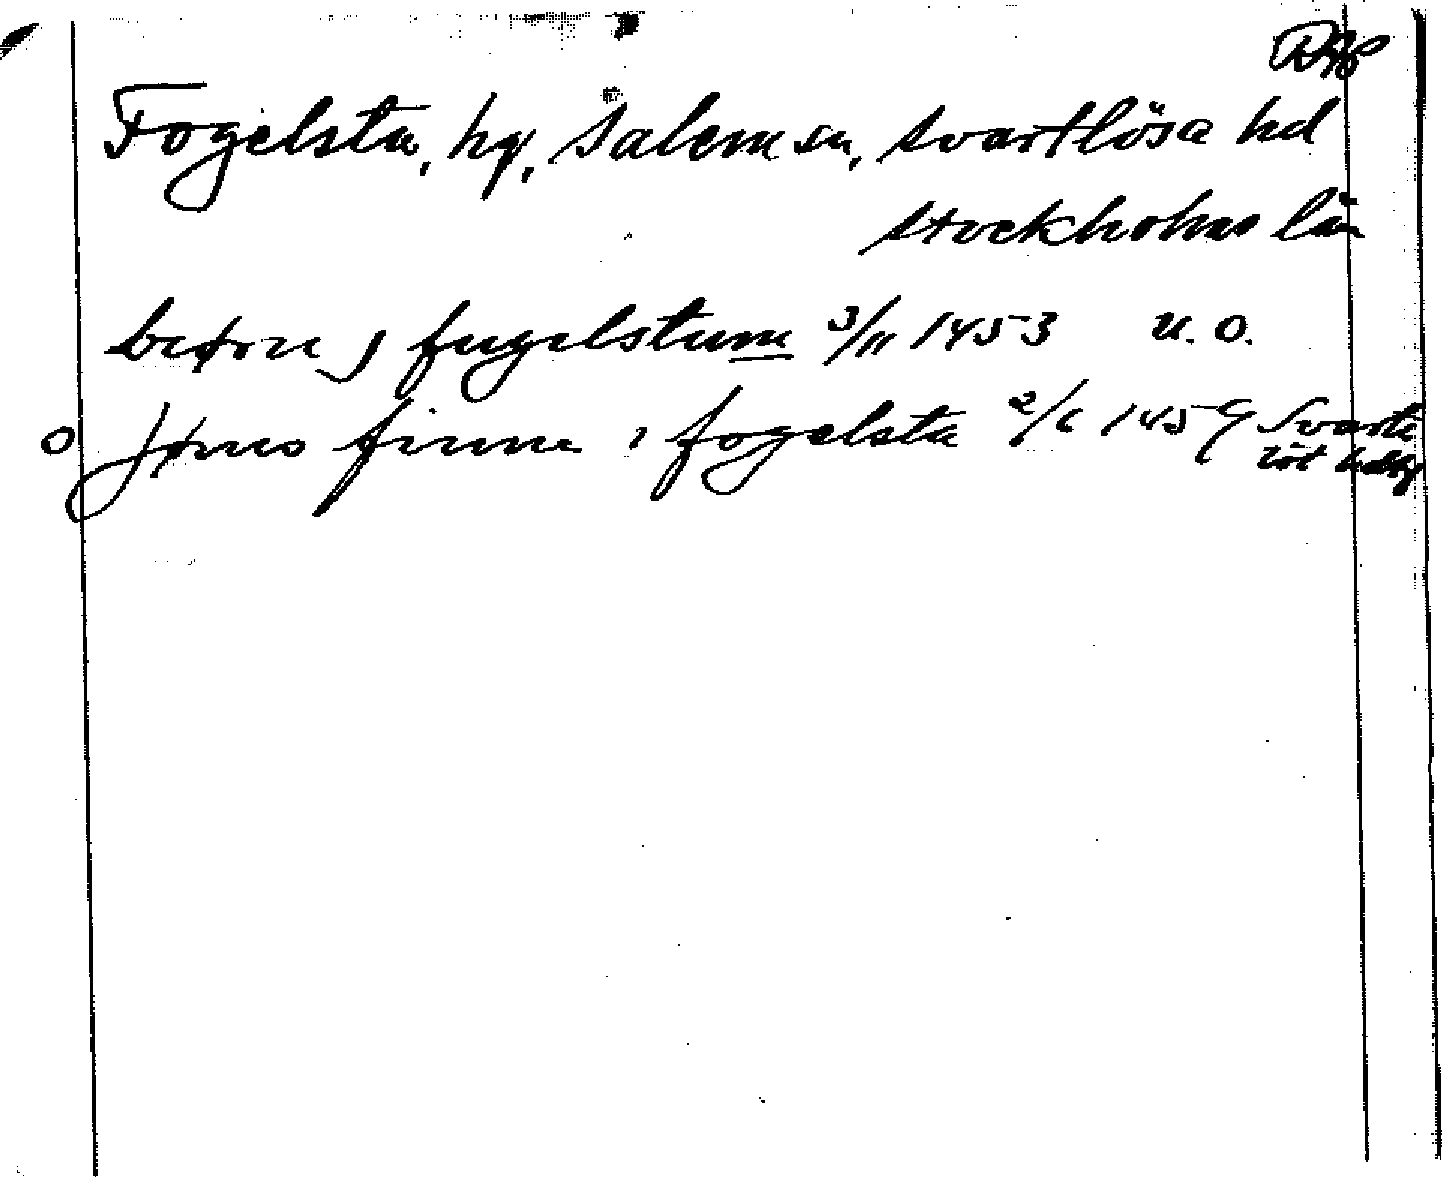 Fogelsta, hg, Salem sn, Svartlösa hd
Stockholms län
bjørn j fugelstum 3/11 1453 u. o.
o jøns finne i fogelsta 2/6 1459 Svarta
löt